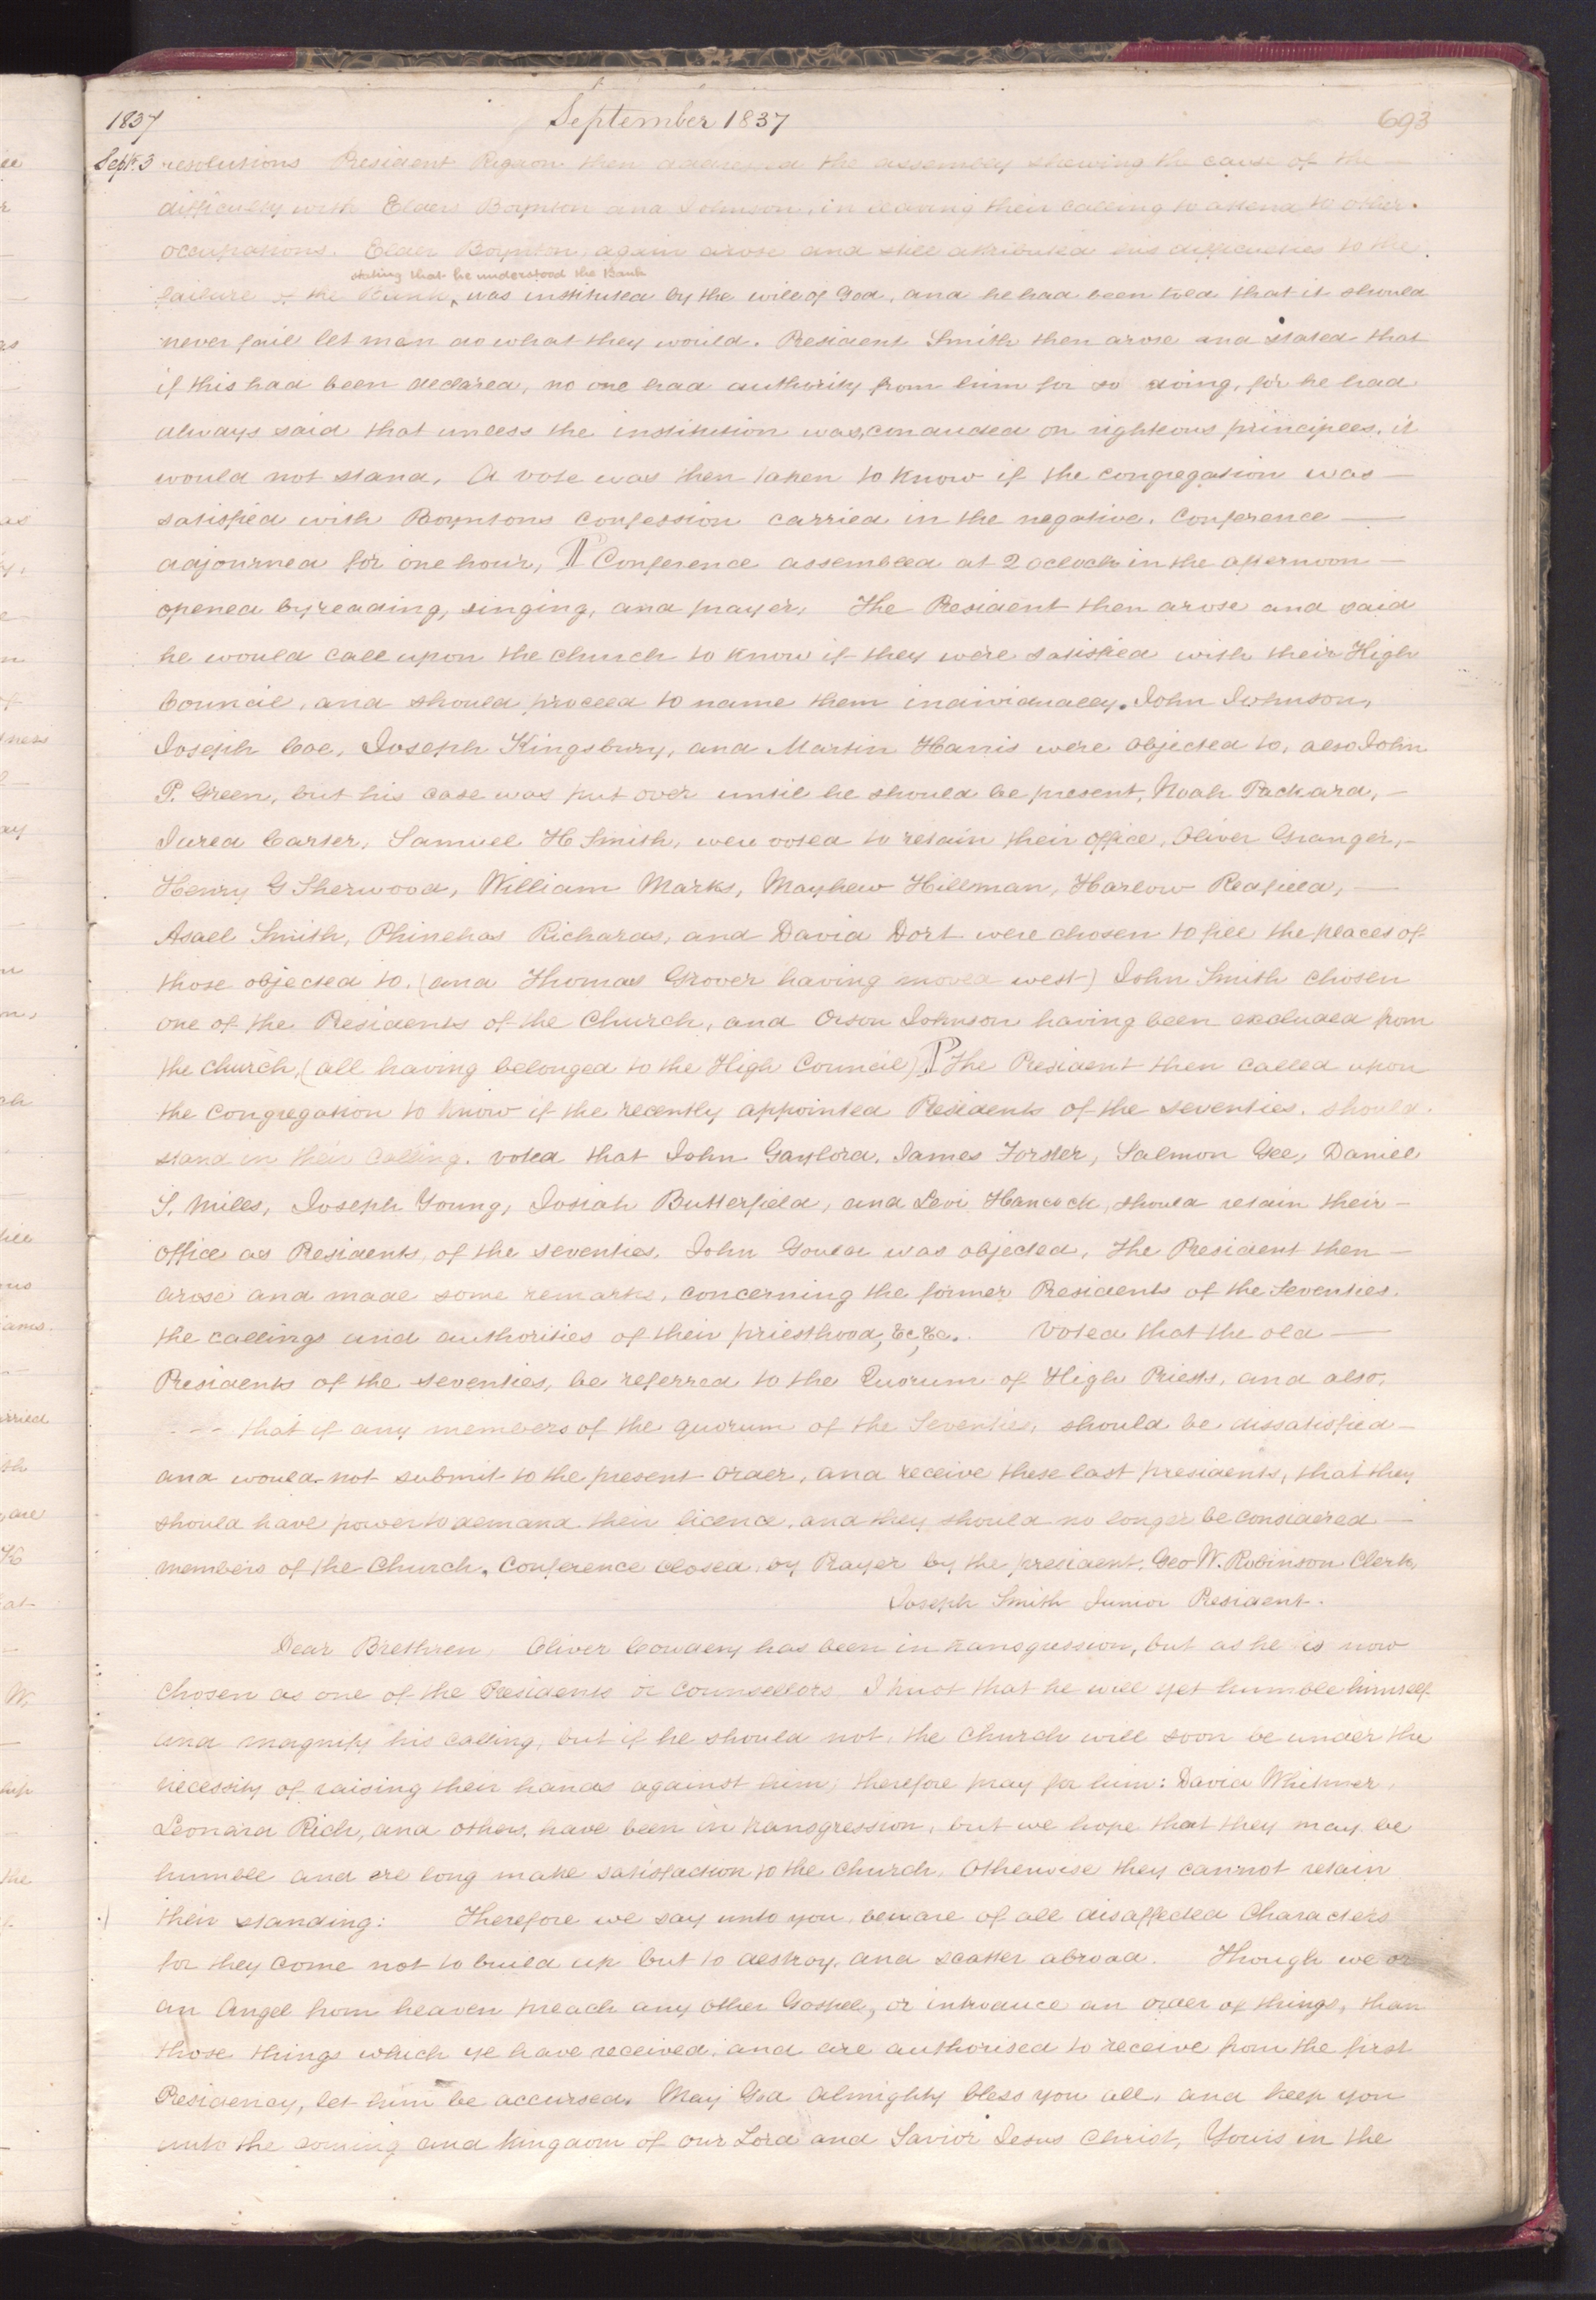 1837 September 1837 693
Sept. 3 resolutions President Rigdon then addressed the assembly shewing the cause of the
difficulty with Elders Boynton and Johnson, in leaving their calling to attend to other
occupations. Elder Boynton again arose and still attributed his difficulties to the
stating that he understood the Bank
failure of the Bank, was instituted by the will of God, and he had been told that it should
never fail let men do what they would. President Smith then arose and stated that
if this had been declared, no one had authority from him for so doing, for he had
always said that unless the institution was, conducted on righteous principles, it
would not stand, A vote was then taken to know if the congregation was
satisfied with Boyntons confession carried in the negative. Conference
adjourned for one hour, ¶ Conference assembled at 2 oclock in the afternoon
opened by reading, singing, and prayer, The President then arose and said
he would call upon the church to know if they were satisfied with their High
Council, and should proceed to name them individually. John Johnson,
Joseph Coe, Joseph Kingsbury, and Martin Harris were objected to, also John
P. Green, but his case was put over until he should be present, Noah Packard,
Jared Carter, Samuel H Smith, were voted to retain their office, Oliver Granger,
Henry G Sherwood, William Marks, Mayhew Hillman, Harlow Redfield,
Asael Smith, Phinehas Richards, and David Dort were chosen to fill the places of
those objected to. (and Thomas Grover having moved west) John Smith chosen
one of the Presidents of the Church, and Orson Johnson having been excluded from
the church, (all having belonged to the High Council) ¶ The President then called upon
the congregation to know if the recently appointed Presidents of the seventies. should
stand in their calling. voted that John Gaylord, James Forster, Salmon Gee, Daniel
S. Miles, Joseph Young, Josiah Butterfield, and Levi Hancock, should retain their
office as Presidents of the seventies. John Gould was objected, The President then
arose and made some remarks, concerning the former Presidents of the Seventies.
the callings and authorities of their priesthood, &c, &c. Voted that the old
Presidents of the seventies, be referred to the Quorum of High Priests, and also,
that if any members of the quorum of the Seventies, should be dissatisfied
and would not submit to the present order, and receive these last presidents, that they
should have power to demand their licence, and they should no longer be considered
members of the Church. Conference closed, by Prayer by the president. Geo W. Robinson Clerk,
Joseph Smith Junior President.
Dear Brethren Oliver Cowdery has been in transgression, but as he is now
chosen as one of the Presidents or Counsellors I trust that he will yet humble himself
and magnify his calling, but if he should not, the church will soon be under the
necessity of raising their hands against him, therefore pray for him: David Whitmer,
Leonard Rich, and others, have been in transgression, but we hope that they may be
humble and ere long make satisfaction to the Church, Otherwise they cannot retain
their standing: Therefore we say unto you beware of all disaffected Characters
for they come not to build up but to destroy, and scatter abroad. Though we or
an Angel from heaven preach any other Gospel, or introduce an order of things, than
those things which ye have received, and are authorised to receive from the first
Presidency, let him be accursed. May God Almighty bless you all, and keep you
unto the coming and kingdom of our Lord and Savior Jesus Christ, Yours in the